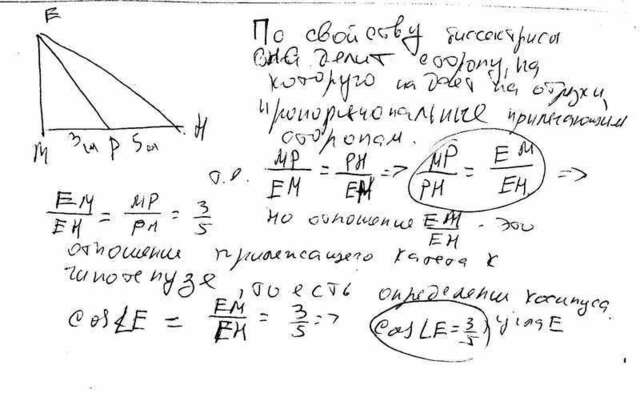 E
По свойству биссектрисы
она делит сторону, на
которую падает на отрезки,
пропорциональные прилегающим
сторонам.
M 3см P 5см H
т.е. MP/EM = PH/EH => MP/PH = EM/EH =>
EM/EH = MP/PH = 3/5
но отношение EM/EH - это
отношение прилежащего катета к
гипотенузе, то есть определение косинуса
cos∠E = EM/EH = 3/5 =>
cos∠E = 3/5, угла E